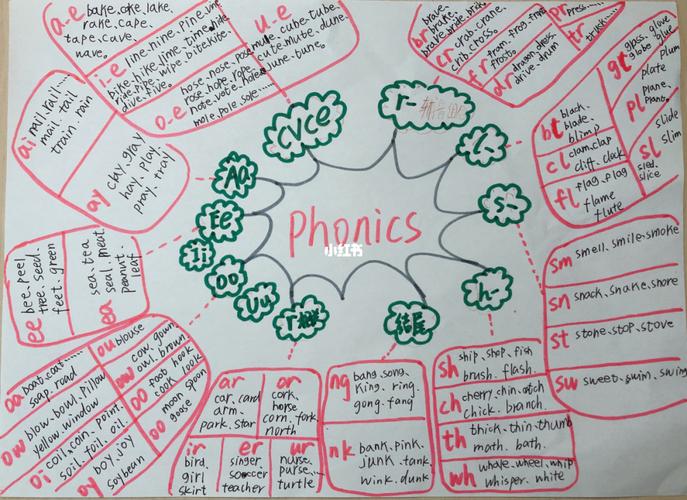 Phonics
小红书
CVCe
a-e
bake.
lake.
rake. cape.
tape. cave.
wave.
i-e
line. nine. pine.
bike. hike. lime. time.
ride. pipe. wipe. bite. kite.
dive. five.
o-e
hose. nose.
rose. hope. rope.
note. vote.
mole. pole. sole.
u-e
mute. cube. tube.
cute. mute. dune.
June. tune.
r-
br
brave.
brake.
cr
crab. crane.
crib. cross.
fr
from. frog. free
frost.
dr
dragon. dress.
drive. drum
pr
press
tr
truck
l-
bl
black.
blade.
blimp
cl
clam. clap
cliff. clock
fl
flag. flog
flame
flute
gl
glass. glove
globe glue
pl
plate plum
plane.
piano.
sl
slide
slim
sled.
slice
s-
sm smell. smile. smoke
sn snack. snake. snore
st stone. stop. stove
sw sweet. swim. swing
h-
sh ship. shop. fish
brush. flash.
ch cherry. chin. catch
chick. branch.
th thick. thin. thumb
math. bath.
wh whale. wheel. whip
whisper. white
结尾
ng
bang. song.
king. ring.
gong. fang
nk
bank. pink.
junk. tank.
wink. dunk
ar
car. card
arm.
park. star
or
cork.
horse
corn. fork.
north
ir
bird.
girl
skirt
er
singer
soccer
teacher
ur
nurse.
purse.
turtle
Aa
ai
mail. tail
train. rain
ay
clay. gray
hay. play.
pray. tray
Ee
ee
bee. peel
tree. seed.
feet. green
ea
sea. tea
seal. meat
peanut.
leaf
Ii
Oo
oa
boat. coat
soap. road
ow
blow. bowl. pillow
yellow. window
oi
coil. coin. point.
soil. foil. oil
oy
boy. joy
soybean
ou
blouse
ow
cow. gown
owl. brown
oo
foot hook
cook look
oo
moon spoon
goose
Uu